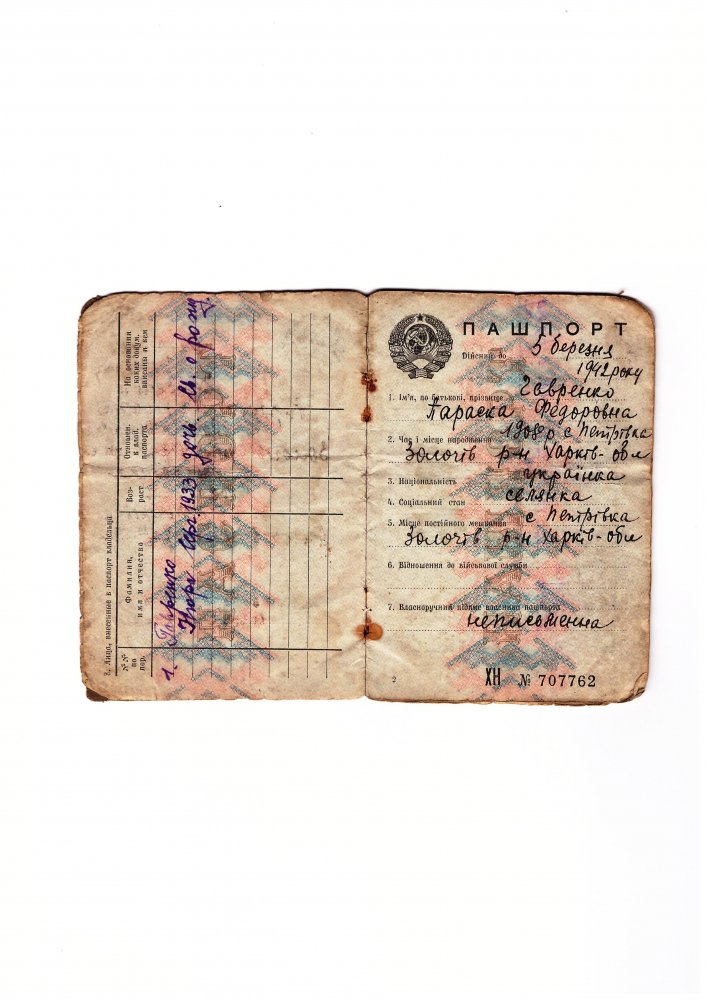 7. Лица, внесенные в паспорт владельца
№№ по пор.
Фамилия, имя и отчество
Возраст
Отношен. к влад. паспорта
На основании каких докум. вписаны и кем
1. Гавренко
1933 дочь св. о рожд.
ПАШПОРТ
Дійсний до 5 березня
1942 року
1. Ім'я, по батькові, прізвище Гавренко
Параска Федоровна
2. Час і місце народження 1908 р с Петрівка
Золочів р-н Харків-обл
3. Національність українка
4. Соціальний стан селянка
5. Місце постійного мешкання с Петрівка
Золочів р-н Харків-обл
6. Відношення до військової служби
7. Власноручний підпис власника пашпорта
неписьменна
2
ХН № 707762